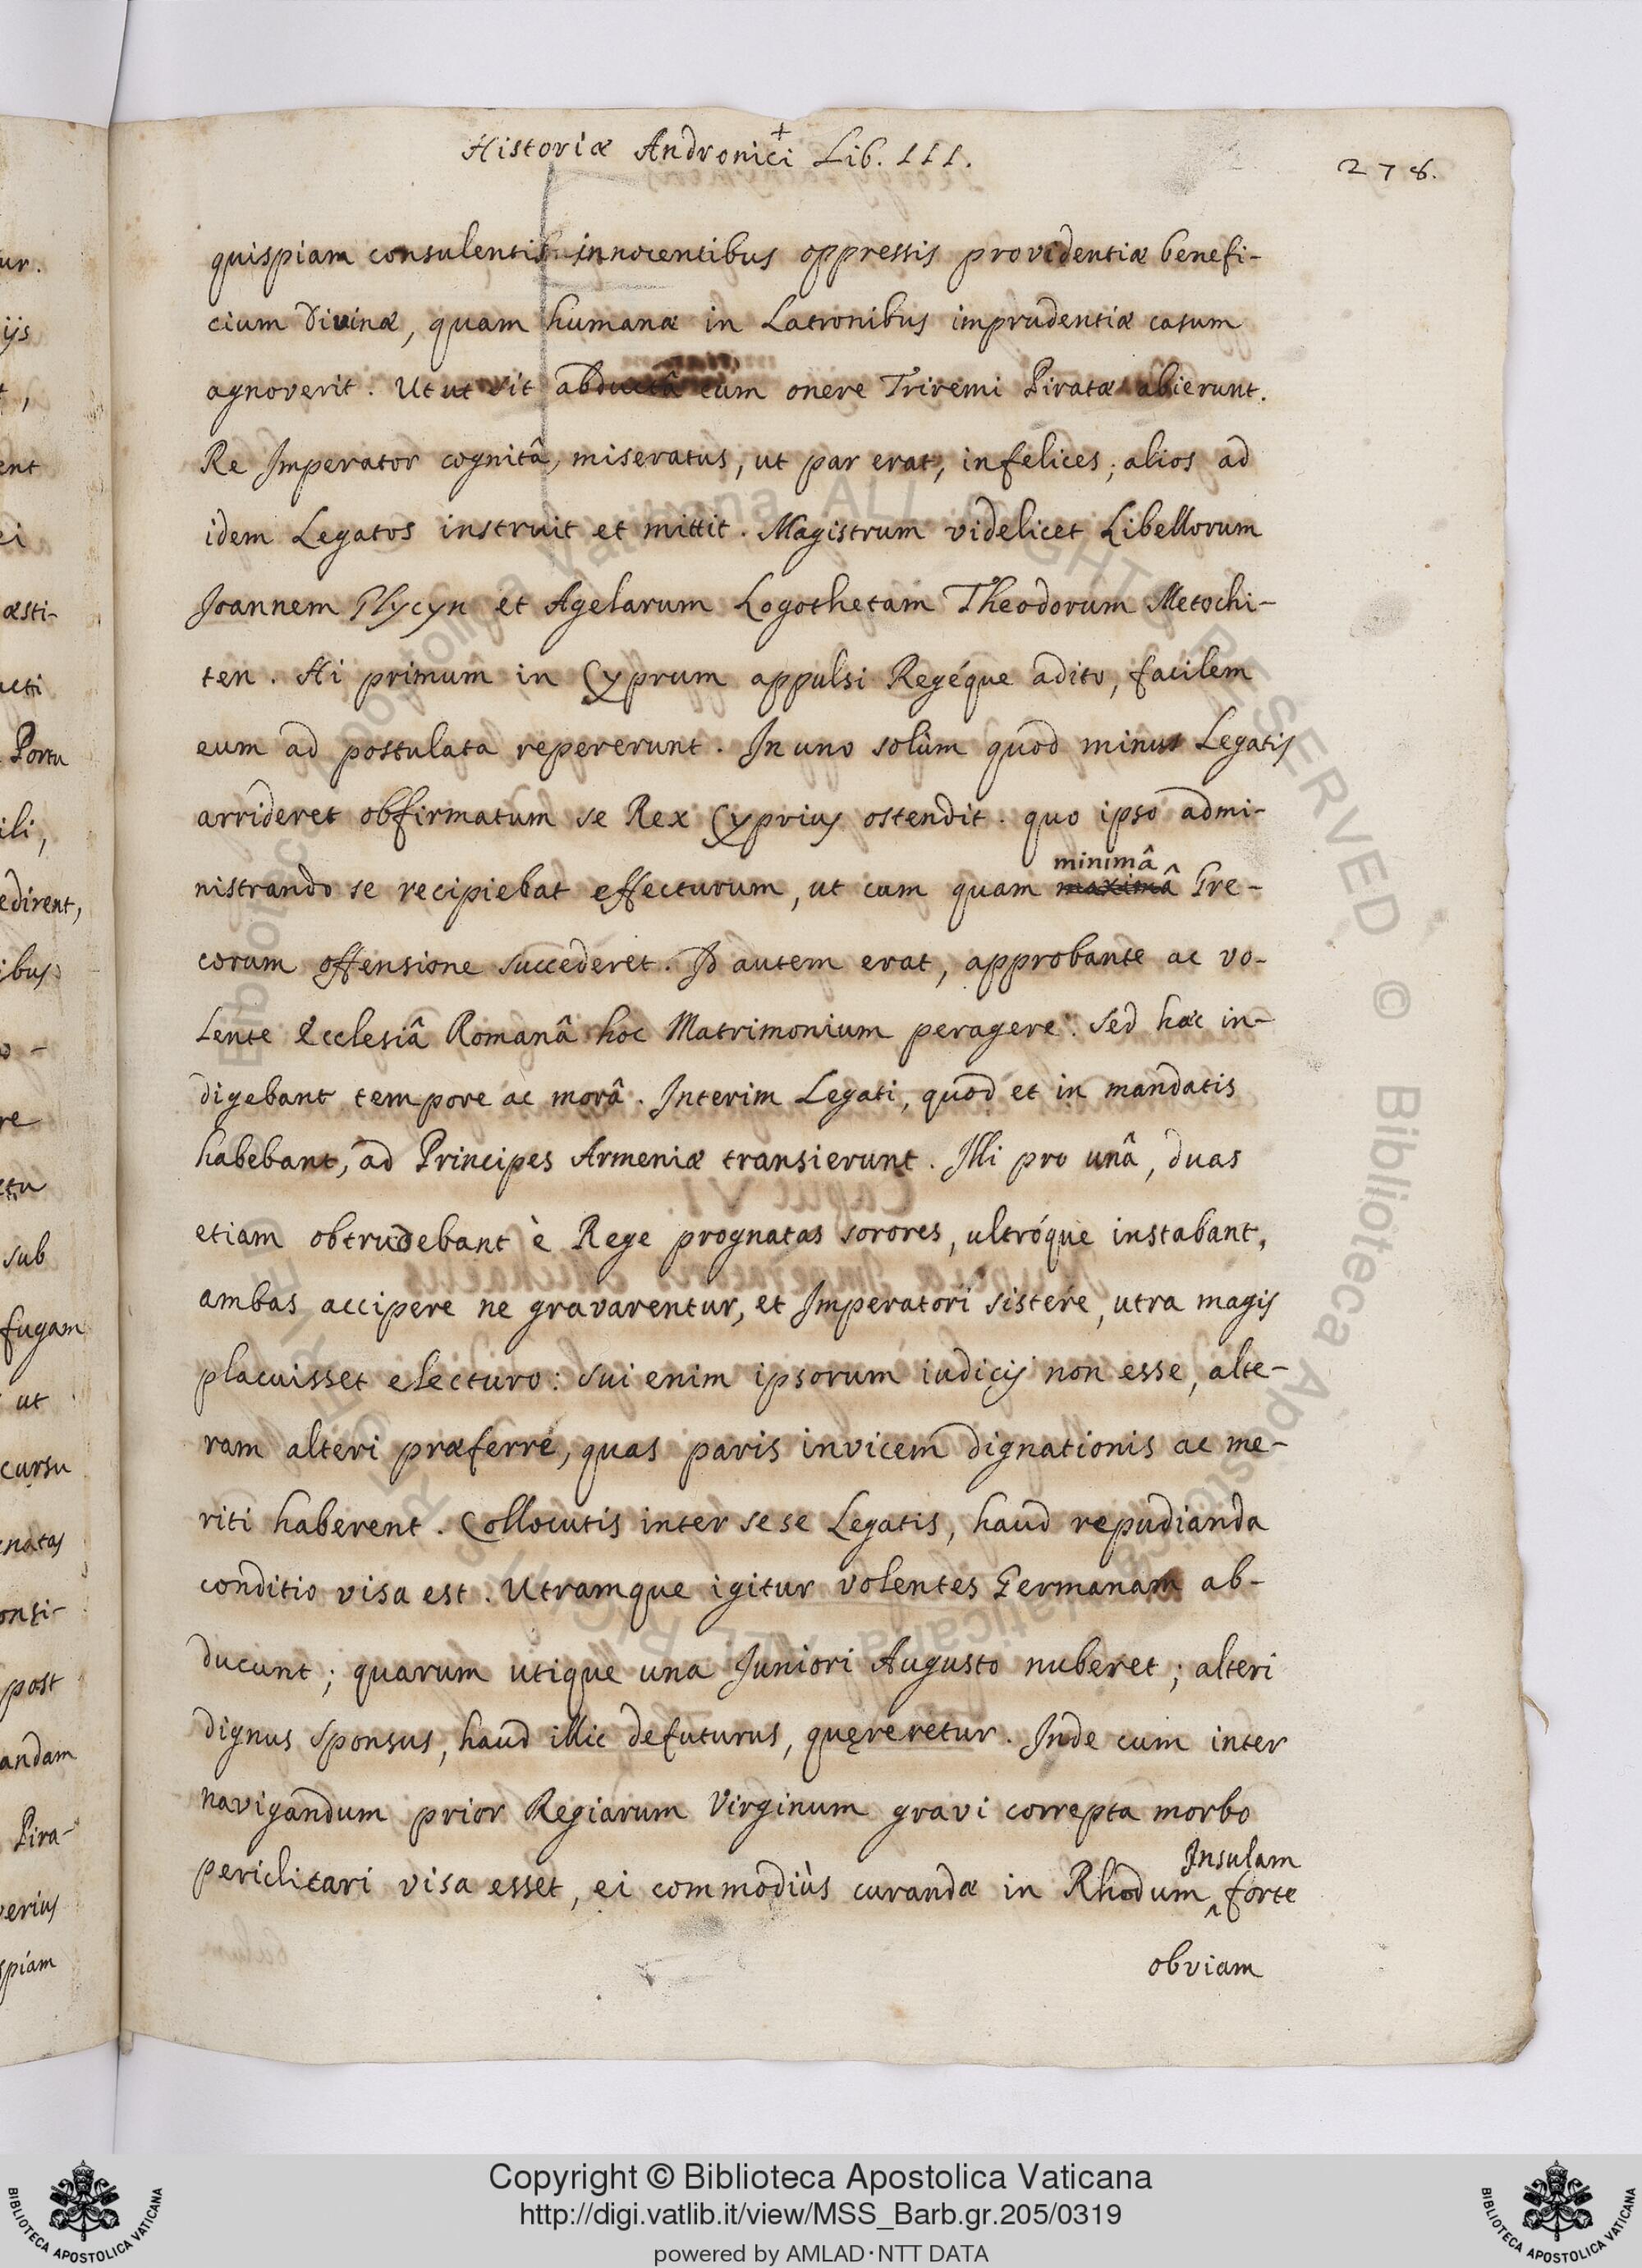 Historiæ Andronici Lib. III.
278.
quispiam consulentis innocentibus oppressis providentiæ benefi-
cium Divinæ, quam humanæ in Latronibus imprudentiæ casum
agnoverit. Ut ut sit abductâ cum onere Triremi Piratæ abierunt.
Re Imperator cognitâ, miseratus, ut par erat, infelices; alios ad
idem Legatos instruit et mittit. Magistrum videlicet Libellorum
Joannem Glycyn et Agelarum Logothetam Theodorum Metochi-
ten. Hi primum in Cyprum appulsi Regéque adito, facilem
eum ad postulata repererunt. In uno solùm quod minus Legatis
arrideret obfirmatum se Rex Cyprius ostendit. quo ipso admi-
nistrando se recipiebat effecturum, ut cum quam maximâ minimâ Gre-
corum offensione succederet. Id autem erat, approbante ac vo-
lente Ecclesiâ Romanâ hoc Matrimonium peragere. Sed hæc in-
digebant tempore ac morâ. Interim Legati, quod et in mandatis
habebant, ad Principes Armeniæ transierunt. Illi pro unâ, duas
etiam obtrudebant è Rege prognatas sorores, ultróque instabant,
ambas accipere ne gravarentur, et Imperatori sistere, utra magis
placuisset electuro: sui enim ipsorum iudicij non esse, alte-
ram alteri præferre, quas paris invicem dignationis ac me-
riti haberent. Collocutis inter sese Legatis, haud repudianda
conditio visa est. Utramque igitur volentes Germanam ab-
ducunt; quarum utique una Juniori Augusto nuberet; alteri
dignus sponsus, haud illic defuturus, quęreretur. Inde cum inter
navigandum prior Regiarum Virginum gravi correpta morbo
periclitari visa esset, ei commodiùs curandæ in Rhodum Insulam forte
obviam
ur.
ijs
t,
ent
ei
æsti-
ucti
Portu
ili,
edirent,
ibus
re
etu
sub
fugam
ut
cursu
enatas
onsi-
post
andam
Pira-
verius
spiam
Copyright © Biblioteca Apostolica Vaticana
http://digi.vatlib.it/view/MSS_Barb.gr.205/0319
powered by AMLAD·NTT DATA
BIBLIOTECA APOSTOLICA VATICANA
BIBLIOTECA APOSTOLICA VATICANA